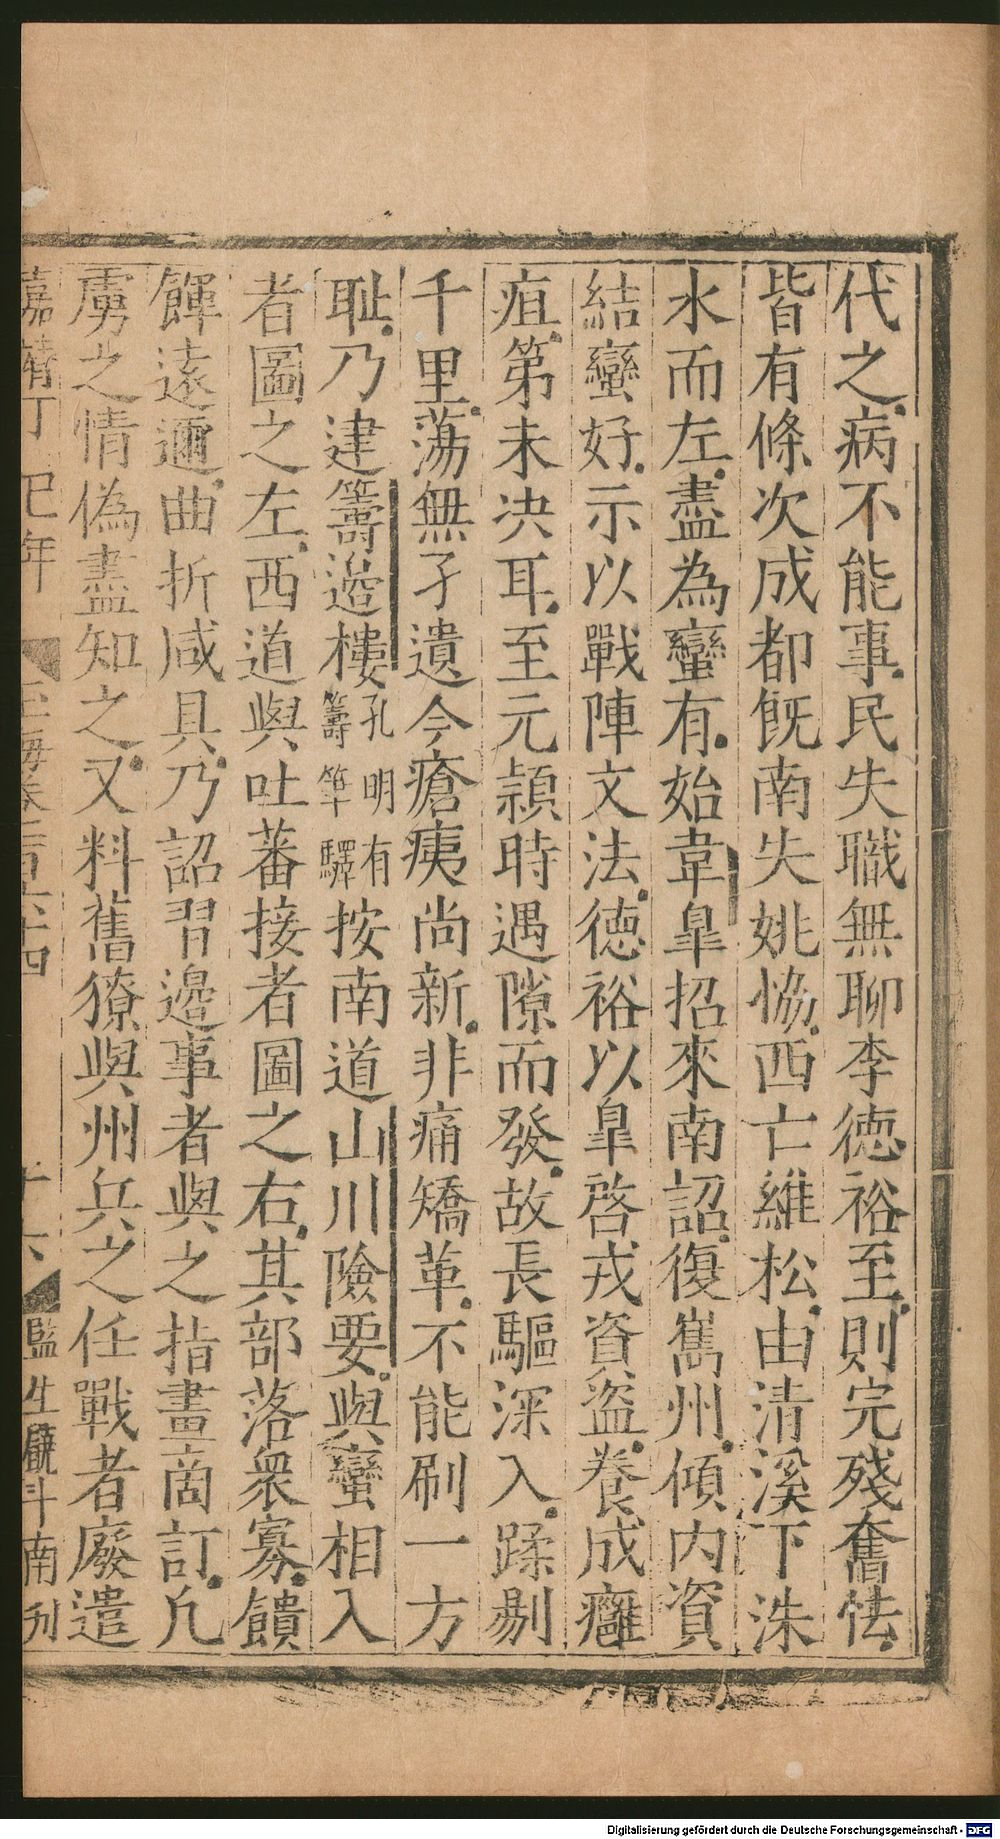 代之病不能事民失職無聊李德裕至則完殘奮怯
皆有條次成都旣南失姚恊西亡維松由清溪下洙
水而左盡為蠻有始韋臯招來南詔復嶲州傾内資
結蠻好示以戰陣文法德裕以臯啓戎資盜養成癰
疽第未决耳至元潁時遇隙而發故長驅深入蹂剔
千里蕩無孑遺今瘡痍尚新非痛矯革不能刷一方
耻乃建籌邊樓孔明有籌筆驛按南道山川險要與蠻相入
者圖之左西道與吐蕃接者圖之右其部落衆寡饋
餫遠邇曲折咸具乃詔習邊事者與之指畫啇訂凡
虜之情偽盡知之又料舊獠與州兵之任戰者廢遣
嘉靖丁巳年 玉海卷一百六十四 十六 監生闕斗南刋
Digitalisierung gefördert durch die Deutsche Forschungsgemeinschaft - DFG